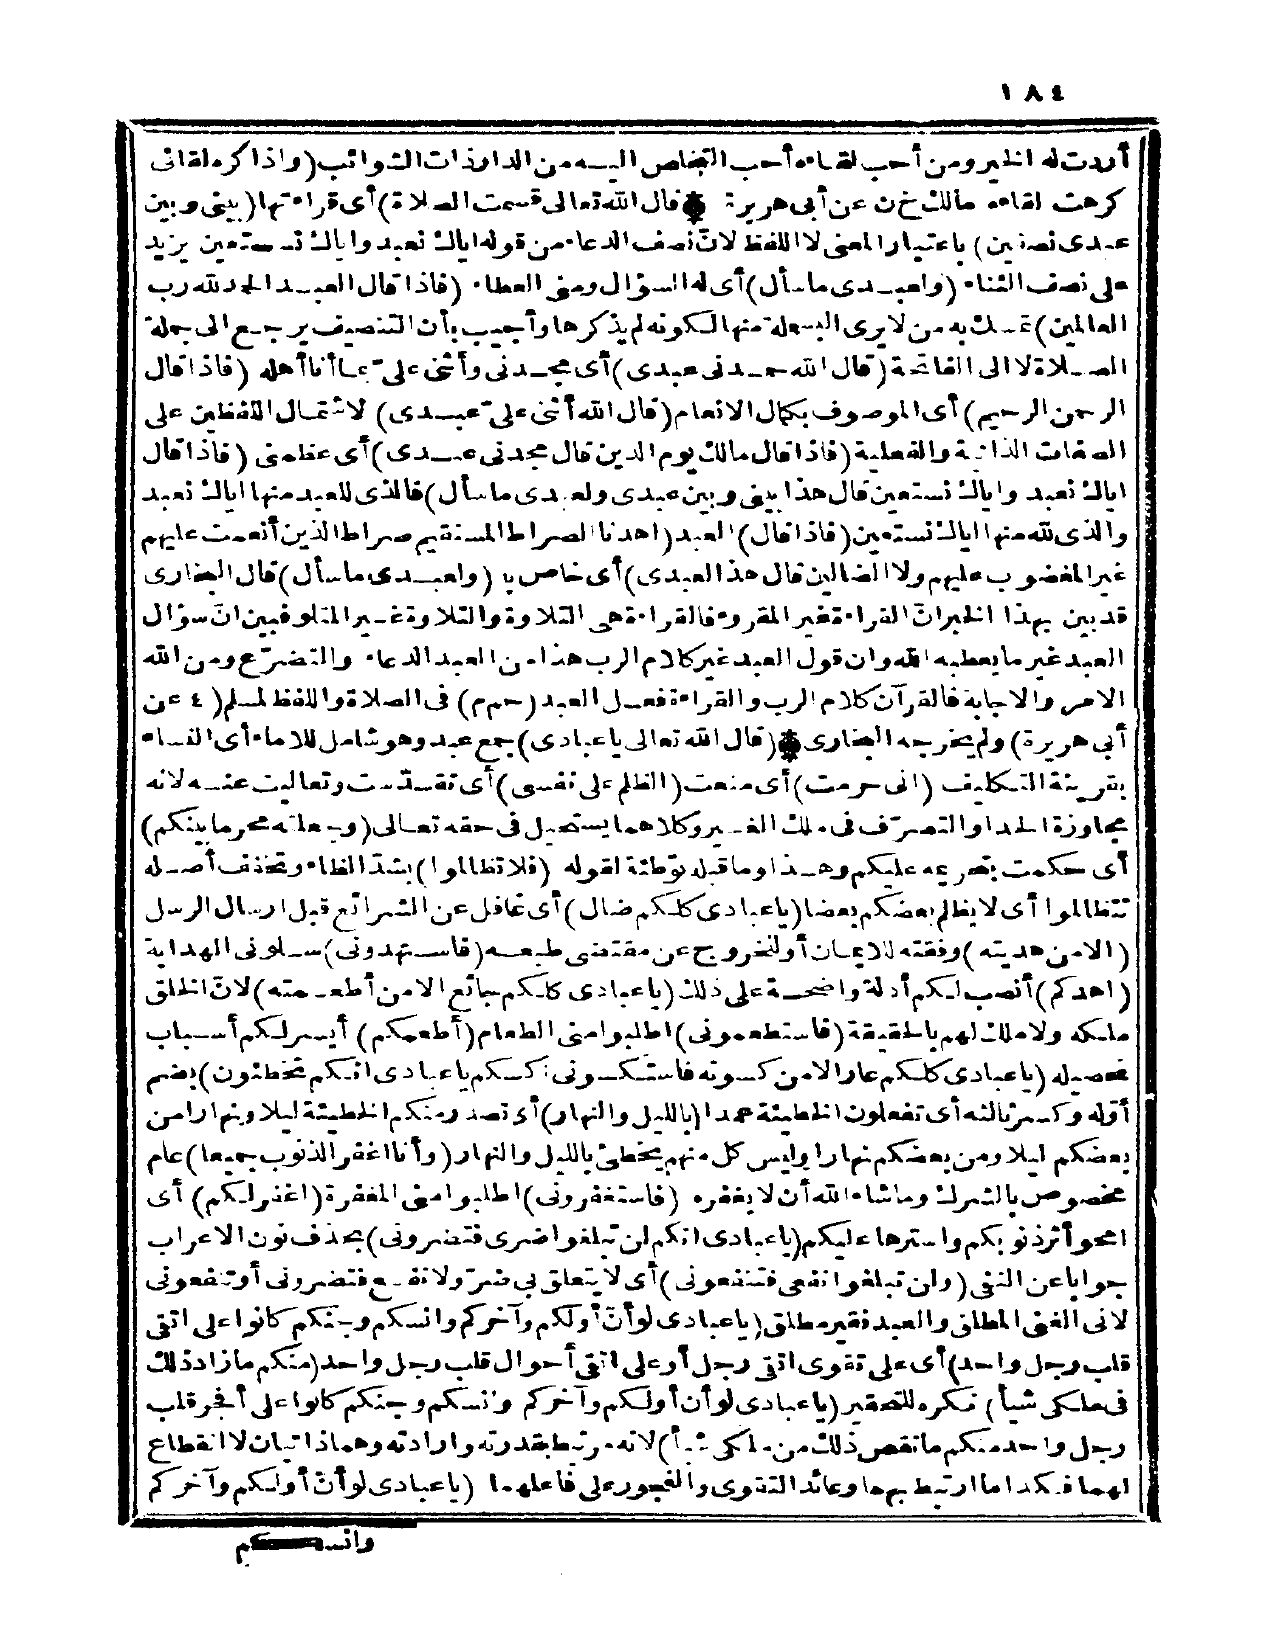 ١٨٤
أردت له الخير ومن أحب لقاءه أحب التخلص اليه من الدار ذات الشوائب (واذا كره لقائى
كرهت لقاءه مالك خ ن عن أبى هريرة * قال الله تعالى قسمت الصلاة) أى قراءتها (بينى وبين
عبدى نصفين) باعتبار المعنى لا اللفظ لانّ نصف الدعاء من قوله اياك نعبد واياك نستعين يزيد
على نصف الثناء (ولعبدى ما سأل) أى له السؤال ومنى العطاء (فاذا قال العبد الحمد لله رب
العالمين) تمسك به من لا يرى البسملة منها لكونه لم يذكرها وأجيب بأن التنصيف يرجع الى جملة
الصلاة لا الى الفاتحة (قال الله حمدنى عبدى) أى مجدنى وأثنى علىّ بما أنا أهله (فاذا قال
الرحمن الرحيم) أى الموصوف بكمال الانعام (قال الله أثنى علىّ عبدى) لاشتمال اللفظين على
الصفات الذاتية والفعلية (فاذا قال مالك يوم الدين قال مجدنى عبدى) أى عظمنى (فاذا قال
اياك نعبد واياك نستعين قال هذا بينى وبين عبدى ولعبدى ما سأل) فالذى للعبد منها اياك نعبد
والذى لله منها اياك نستعين (فاذا قال) العبد (اهدنا الصراط المستقيم صراط الذين أنعمت عليهم
غير المغضوب عليهم ولا الضالين قال هذا لعبدى) أى خاص به (ولعبدى ما سأل) قال البخارى
قد بين بهذا الخبر انّ القراءة غير المقروء فالقراءة هى التلاوة والتلاوة غير المتلو فبين انّ سؤال
العبد غير ما يعطيه الله وان قول العبد غير كلام الرب هذا من العبد الدعاء والتضرّع ومن الله
الامر والاجابة فالقرآن كلام الرب والقراءة فعل العبد (حم م) فى الصلاة واللفظ لمسلم (٤ عن
أبى هريرة) ولم يخرجه البخارى * (قال الله تعالى يا عبادى) جمع عبد وهو شامل للاماء أى النساء
بقرينة التكليف (انى حرمت) أى منعت (الظلم على نفسى) أى تقدّست وتعاليت عنه لانه
مجاوزة الحد أو التصرّف فى ملك الغير وكلاهما يستحيل فى حقه تعالى (وجعلته محرما بينكم)
أى حكمت بتحريمه عليكم وهذا وما قبله توطئة لقوله (فلا تظالموا) بشدّ الظاء وتخفف أصله
تتظالموا أى لا يظلم بعضكم بعضا (يا عبادى كلكم ضال) أى غافل عن الشرائع قبل ارسال الرسل
(الا من هديته) وفقته للايمان أو للخروج عن مقتضى طبعه (فاستهدونى) سلونى الهداية
(اهدكم) أنصب لكم أدلة واضحة على ذلك (يا عبادى كلكم جائع الا من أطعمته) لانّ الخلق
ملكه ولا ملك لهم بالحقيقة (فاستطعمونى) اطلبوا منى الطعام (أطعمكم) أيسر لكم أسباب
تحصيله (يا عبادى كلكم عار الا من كسوته فاستكسونى أكسكم يا عبادى انكم تخطئون) بضم
أوّله وكسر ثالثه أى تفعلون الخطيئة عمدا (بالليل والنهار) أى تصدر منكم الخطيئة ليلا ونهارا من
بعضكم ليلا ومن بعضكم نهارا وليس كل منهم يخطئ بالليل والنهار (وأنا اغفر الذنوب جميعا) عام
مخصوص بالشرك وما شاء الله أن لا يغفره (فاستغفرونى) اطلبوا منى المغفرة (اغفر لكم) أى
امحو أثر ذنوبكم واسترها عليكم (يا عبادى انكم لن تبلغوا ضرى فتضرونى) بحذف نون الاعراب
جوابا عن النفى (ولن تبلغوا نفعى فتنفعونى) أى لا يتعلق بى ضرّ ولا نفع فتضرونى أو تنفعونى
لانى الغنى المطلق والعبد فقير مطلق (يا عبادى لو أنّ أولكم وآخركم وانسكم وجنكم كانوا على اتقى
قلب رجل واحد) أى على تقوى اتقى رجل أو على اتقى أحوال قلب رجل واحد (منكم ما زاد ذلك
فى ملكى شيأ) نكره للتحقير (يا عبادى لو أن أولكم وآخركم وانسكم وجنكم كانوا على أفجر قلب
رجل واحد منكم ما نقص ذلك من ملكى شيأ) لانه مرتبط بقدرته وارادته وهما ذاتيان لا انقطاع
لهما فكذا ما ارتبط بهما وعائد التقوى والفجور على فاعلهما (يا عبادى لو أنّ أولكم وآخركم
وانسكم